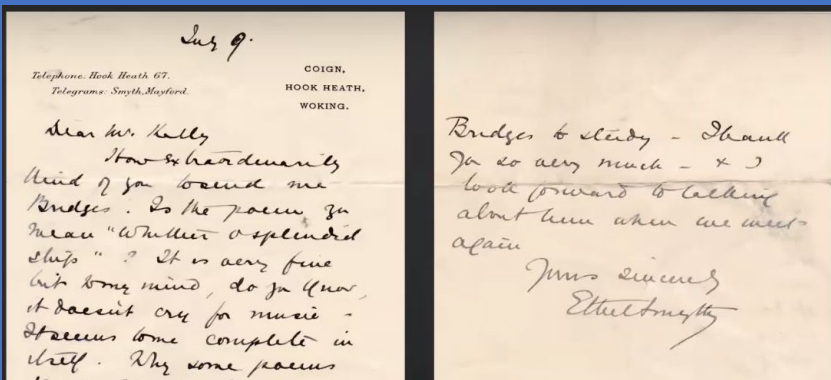 July 9.
Telephone. Hook Heath 67.
Telegrams: Smyth, Mayford.
COIGN,
HOOK HEATH,
WOKING.
Dear Mr. Kelly
How extraordinarily
kind of you to send me
Bridges. Is the poem you
mean "Whither o splendid
ship"? It is very fine
but to my mind, do you know,
it doesn't cry for music -
It seems to me complete in
itself. Why some poems
Bridges to study - Thank
you so very much - & I
look forward to talking
about him when we meet
again
Yours sincerely
Ethel Smyth